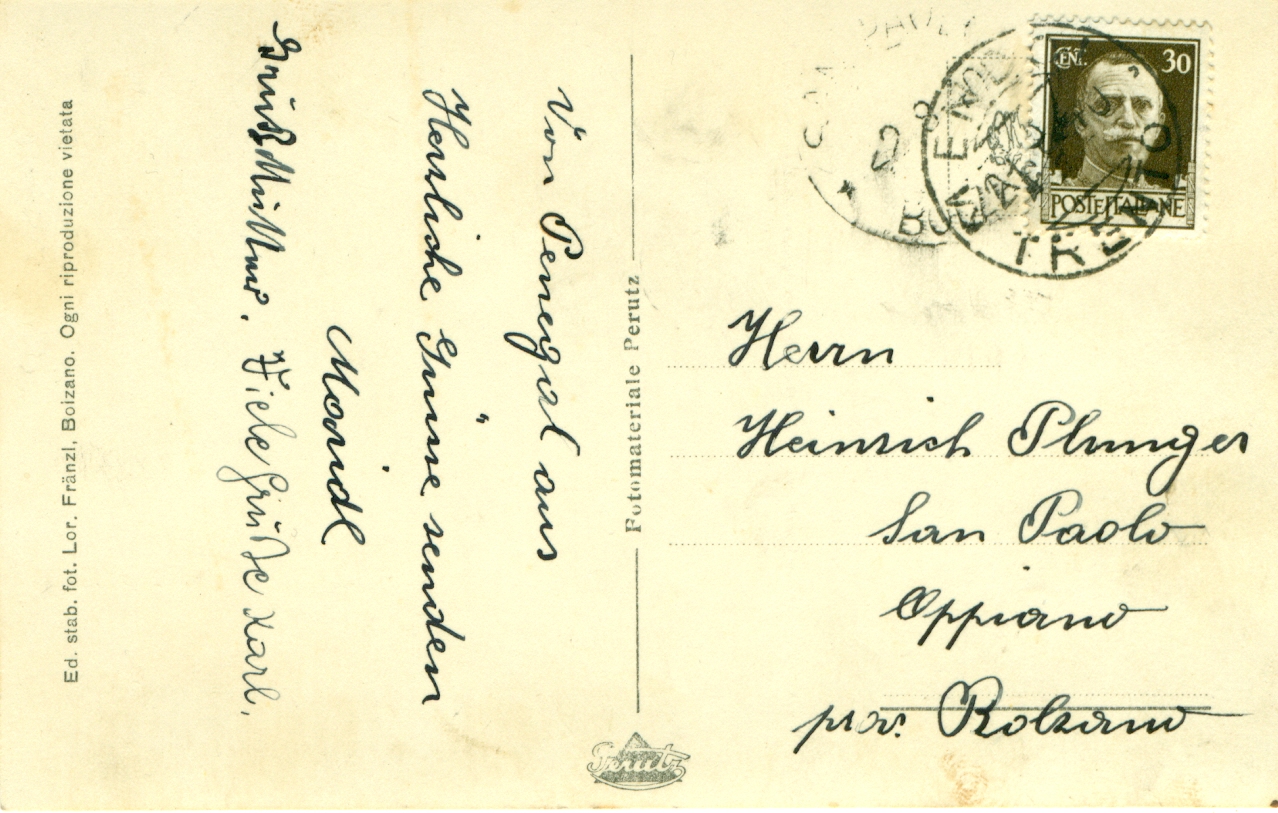 Von Penegal aus
Herzliche Grüsse senden
Moidl
Gruß Mutter. Viele Grüße Karl.
Ed. stab. fot. Lor. Fränzl, Bolzano. Ogni riproduzione vietata
Fotomateriale Perutz
Perutz
CEN. 30
POSTE ITALIANE
TRENTO
Herrn
Heinrich Plunger
San Paolo
Appiano
prov. Bolzano